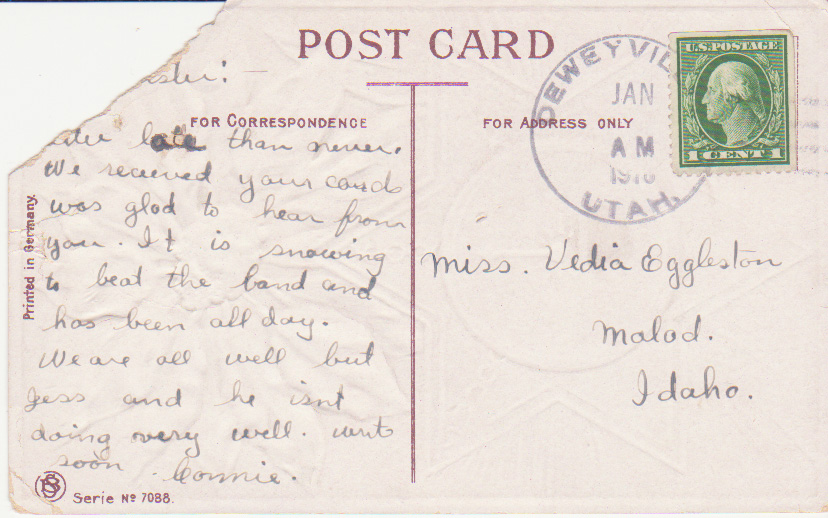 POST CARD
FOR CORRESPONDENCE
late than never.
We received your cards
was glad to hear from
you. It is snowing
to beat the band and
has been all day.
We are all well but
Jess and he isnt
doing very well. write
soon Connie.
Printed in Germany.
Serie No 7088.
FOR ADDRESS ONLY
DEWEYVIL
JAN
AM
UTAH.
U.S. POSTAGE
1 CENT 1
Miss. Vedia Eggleston
Malad.
Idaho.